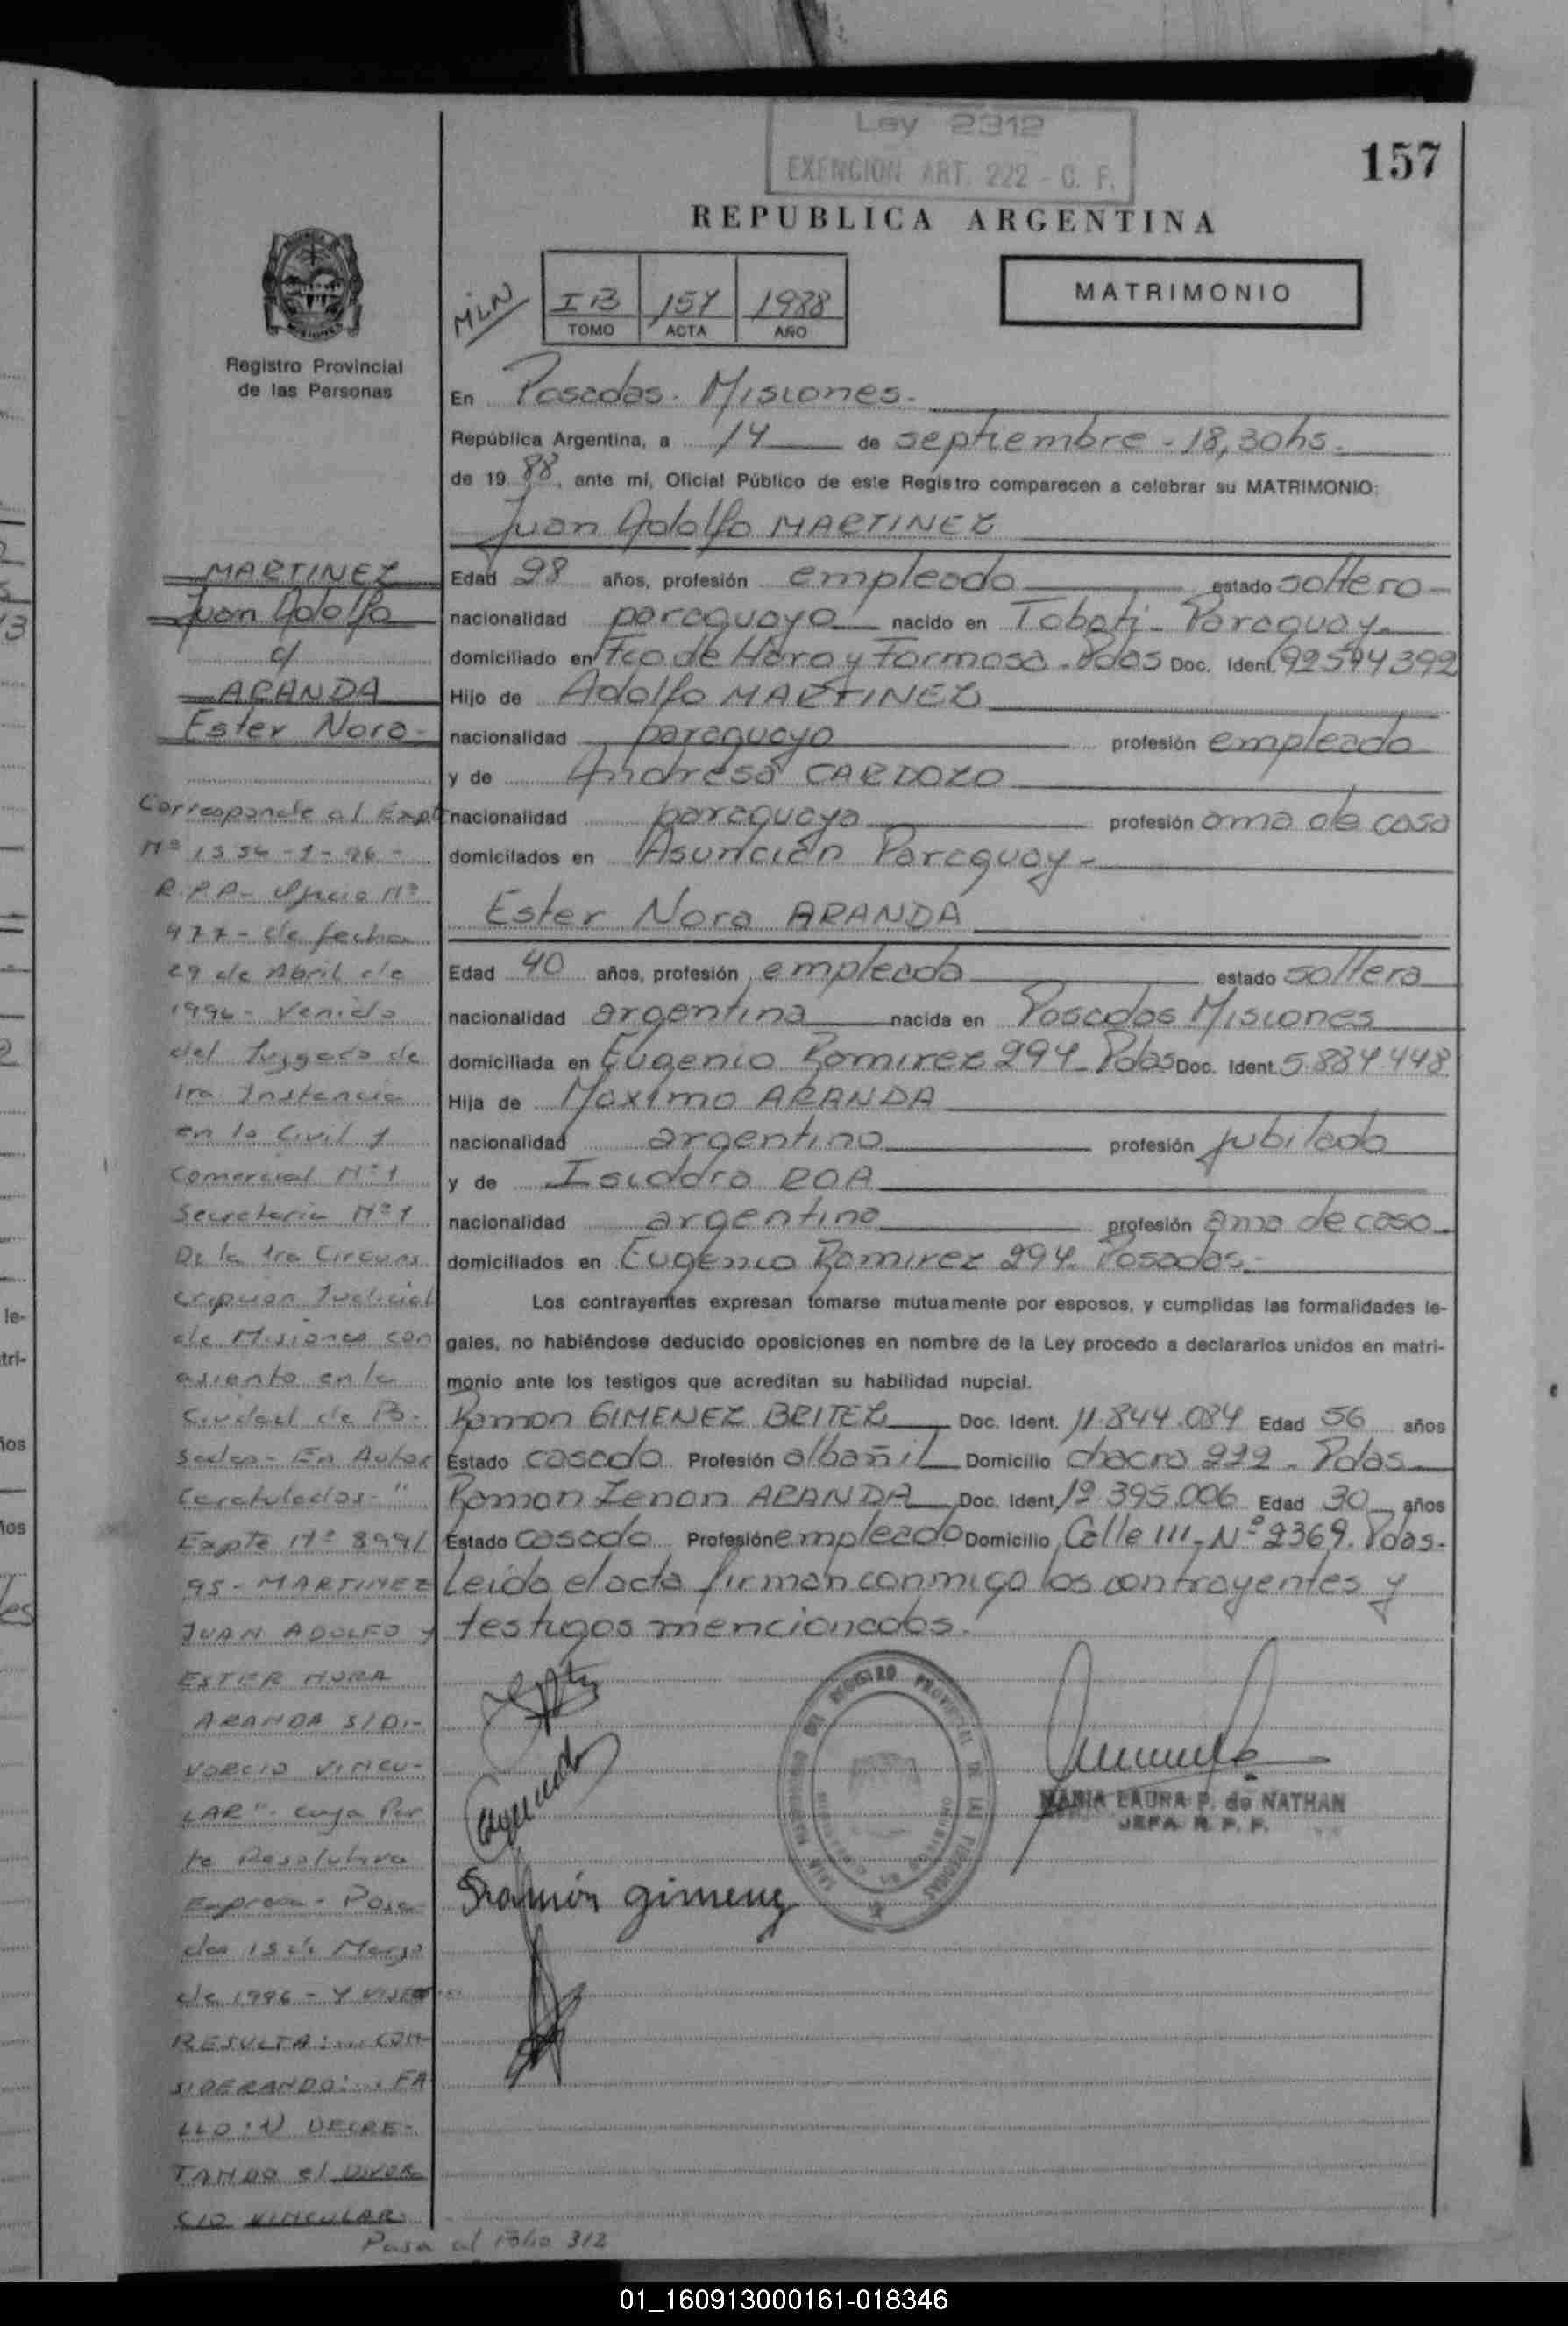 Ley 2312
EXENCION ART. 222 - C. F.
157
REPUBLICA ARGENTINA
MLN
I B 157 1988
TOMO ACTA AÑO
MATRIMONIO
Registro Provincial
de las Personas
En Posadas - Misiones -
República Argentina, a 14 de septiembre - 18,30hs.
de 19 88, ante mí, Oficial Público de este Registro comparecen a celebrar su MATRIMONIO:
Juan Adolfo MARTINEZ
Edad 28 años, profesión empleado estado soltero
nacionalidad paraguaya nacido en Tobati - Paraguay -
domiciliado en Fco de Haro y Formosa - Pdas Doc. Ident. 92544392
Hijo de Adolfo MARTINEZ
nacionalidad paraguayo profesión empleado
y de Andresa CARDOZO
nacionalidad paraguaya profesión ama de casa
domicilados en Asunción Paraguay -
Ester Nora ARANDA
Edad 40 años, profesión empleada estado soltera
nacionalidad argentina nacida en Posadas Misiones
domiciliada en Eugenio Ramirez 294 - Pdas Doc. Ident. 5.884.448
Hija de Maximo ARANDA
nacionalidad argentino profesión jubilado
y de Isidora ROA
nacionalidad argentina profesión ama de casa.
domiciliados en Eugenio Ramirez 294. Posadas.-
Los contrayentes expresan tomarse mutuamente por esposos, y cumplidas las formalidades le-
gales, no habiéndose deducido oposiciones en nombre de la Ley procedo a declararlos unidos en matri-
monio ante los testigos que acreditan su habilidad nupcial.
Ramon GIMENEZ BRITEZ Doc. Ident. 11.844.084 Edad 56 años
Estado casado Profesión albañil Domicilio chacra 222 - Pdas
Ramon Zenon ARANDA Doc. Ident. 12.395.006 Edad 30 años
Estado casado Profesión empleado Domicilio Calle 111 - Nº 2369. Pdas.
Leida el acta firman conmigo los contrayentes y
testigos mencionados.
MARIA LAURA P. de NATHAN
JEFA R. P. P.
Ramón gimenez
MARTINEZ
Juan Adolfo
c/
ARANDA
Ester Nora -
Corresponde al Expte
Nº 1336 - 1 - 96 -
R.P.P - Oficio Nº
477 - de fecha
29 de Abril de
1996 - Venido
del Juzgado de
1ra Instancia
en lo Civil y
Comercial Nº 1
Secretaria Nº 1
De la 1ra Circuns
cripcion Judicial
de Misiones con
asiento en la
Ciudad de Po-
sadas - En Autos
Caratulados - "
Expte Nº 899/
95 - MARTINEZ
JUAN ADOLFO y
ESTER NORA
ARANDA S/DI-
VORCIO VINCU-
LAR" - cuya Par
te Resolutiva
Expresa - Posa
das 15 de Marzo
de 1996 - Y VISTO
RESULTA: ... CON
SIDERANDO: .. FA
LLO: 1) DECRE-
TANDO el DIVOR
CIO VINCULAR
Pasa al folio 312
01_160913000161-018346